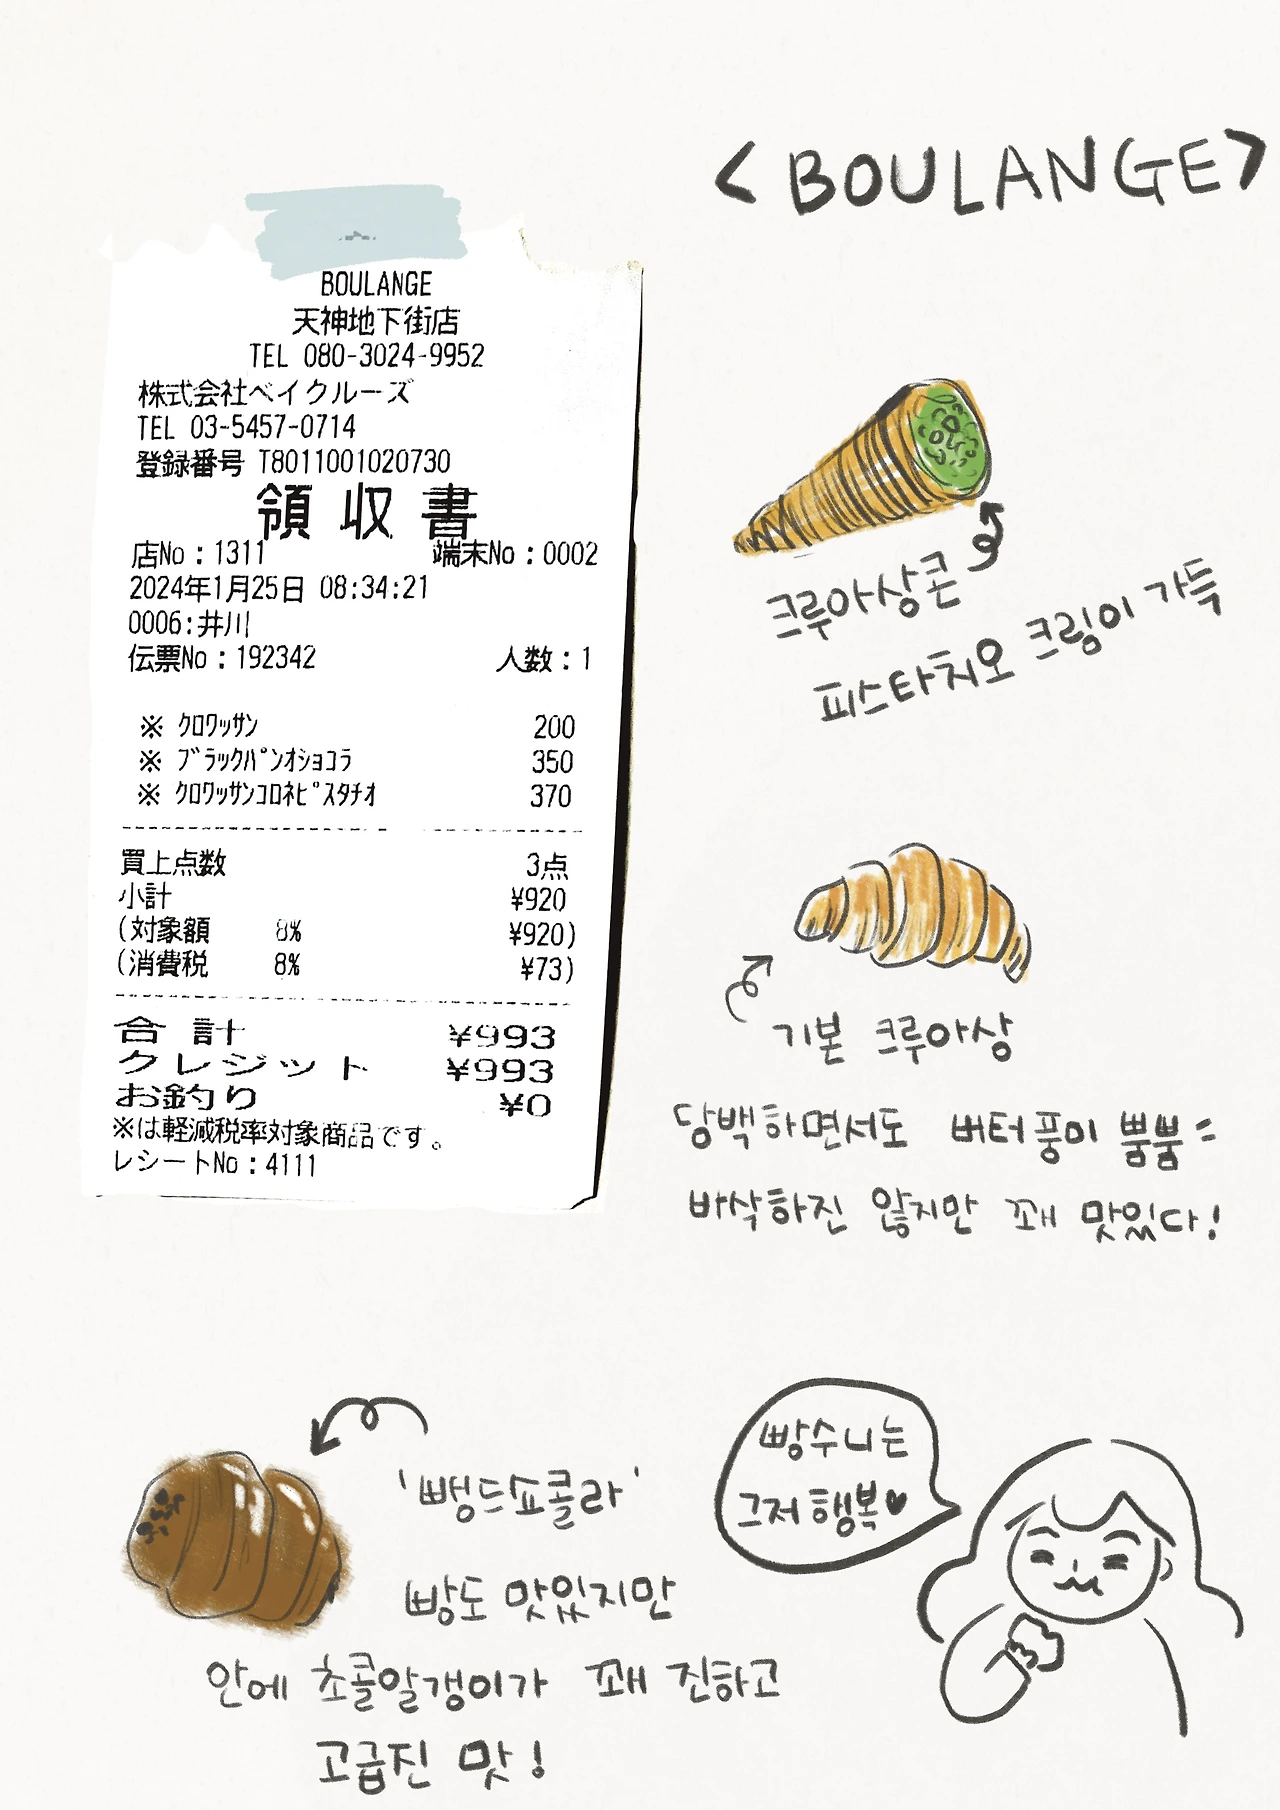 <BOULANGE>
BOULANGE
天神地下街店
TEL 080-3024-9952
株式会社ベイクルーズ
TEL 03-5457-0714
登録番号 T8011001020730
領収書
店No：1311 端末No：0002
2024年1月25日 08:34:21
0006:井川
伝票No：192342 人数：1
※ ｸﾛﾜｯｻﾝ 200
※ ﾌﾞﾗｯｸﾊﾟﾝｵｼｮｺﾗ 350
※ ｸﾛﾜｯｻﾝｺﾛﾈﾋﾟｽﾀﾁｵ 370
買上点数 3点
小計 ¥920
(対象額 8% ¥920)
(消費税 8% ¥73)
合計 ¥993
クレジット ¥993
お釣り ¥0
※は軽減税率対象商品です。
レシートNo：4111
크루아상콘
피스타치오 크림이 가득
기본 크루아상
담백하면서도 버터풍미 뿜뿜=
바삭하진 않지만 꽤 맛있다!
'뺑드쇼콜라'
빵도 맛있지만
안에 초콜알갱이가 꽤 진하고
고급진 맛!
빵수니는
그저 행복♥